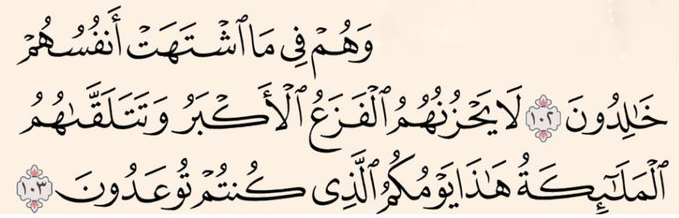 وَهُمْ فِي مَا ٱشْتَهَتْ أَنفُسُهُمْ
خَٰلِدُونَ ١٠٢ لَا يَحْزُنُهُمُ ٱلْفَزَعُ ٱلْأَكْبَرُ وَتَتَلَقَّىٰهُمُ
ٱلْمَلَٰٓئِكَةُ هَٰذَا يَوْمُكُمُ ٱلَّذِي كُنتُمْ تُوعَدُونَ ١٠٣